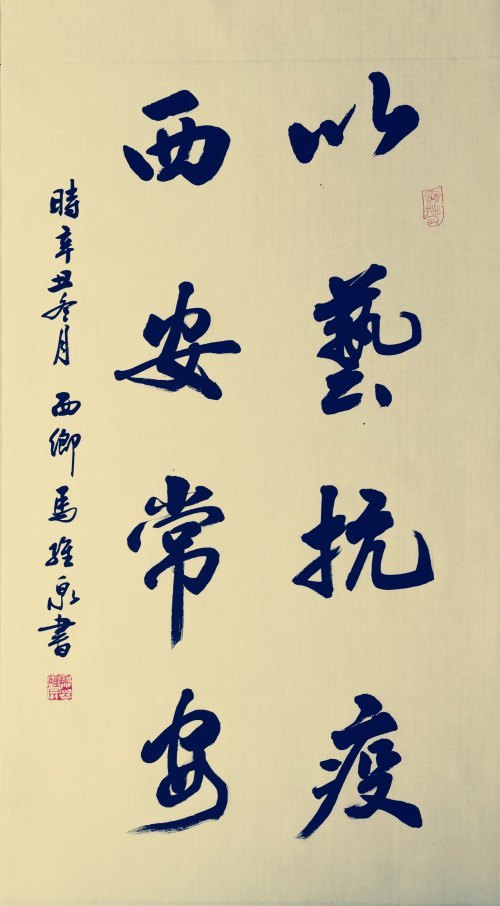 以藝抗疫
西安常安
時辛丑冬月西鄉馬維泉書